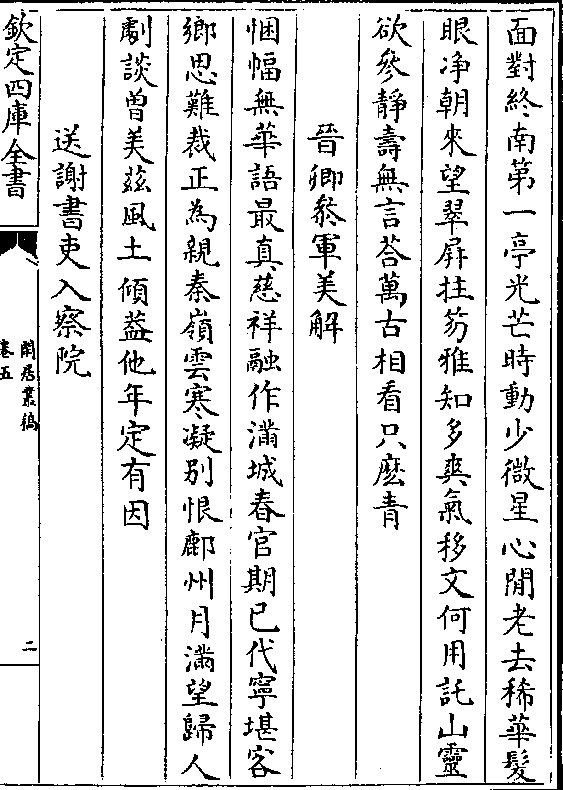 面對終南第一亭光芒時動少微星心閒老去稀華髮
眼净朝來望翠屛拄笏雅知多爽氣移文何用託山靈
欲參靜壽無言荅萬古相看只麽青
晉卿參軍美解
悃愊無華語最真慈祥融作滿城春官期已代寧堪客
鄉思難裁正為親秦嶺雲寒凝别恨鄜州月滿望歸人
劇談曾美兹風土傾葢他年定有因
送謝書吏入察院
欽定四庫全書
閒居叢稿
卷五
二